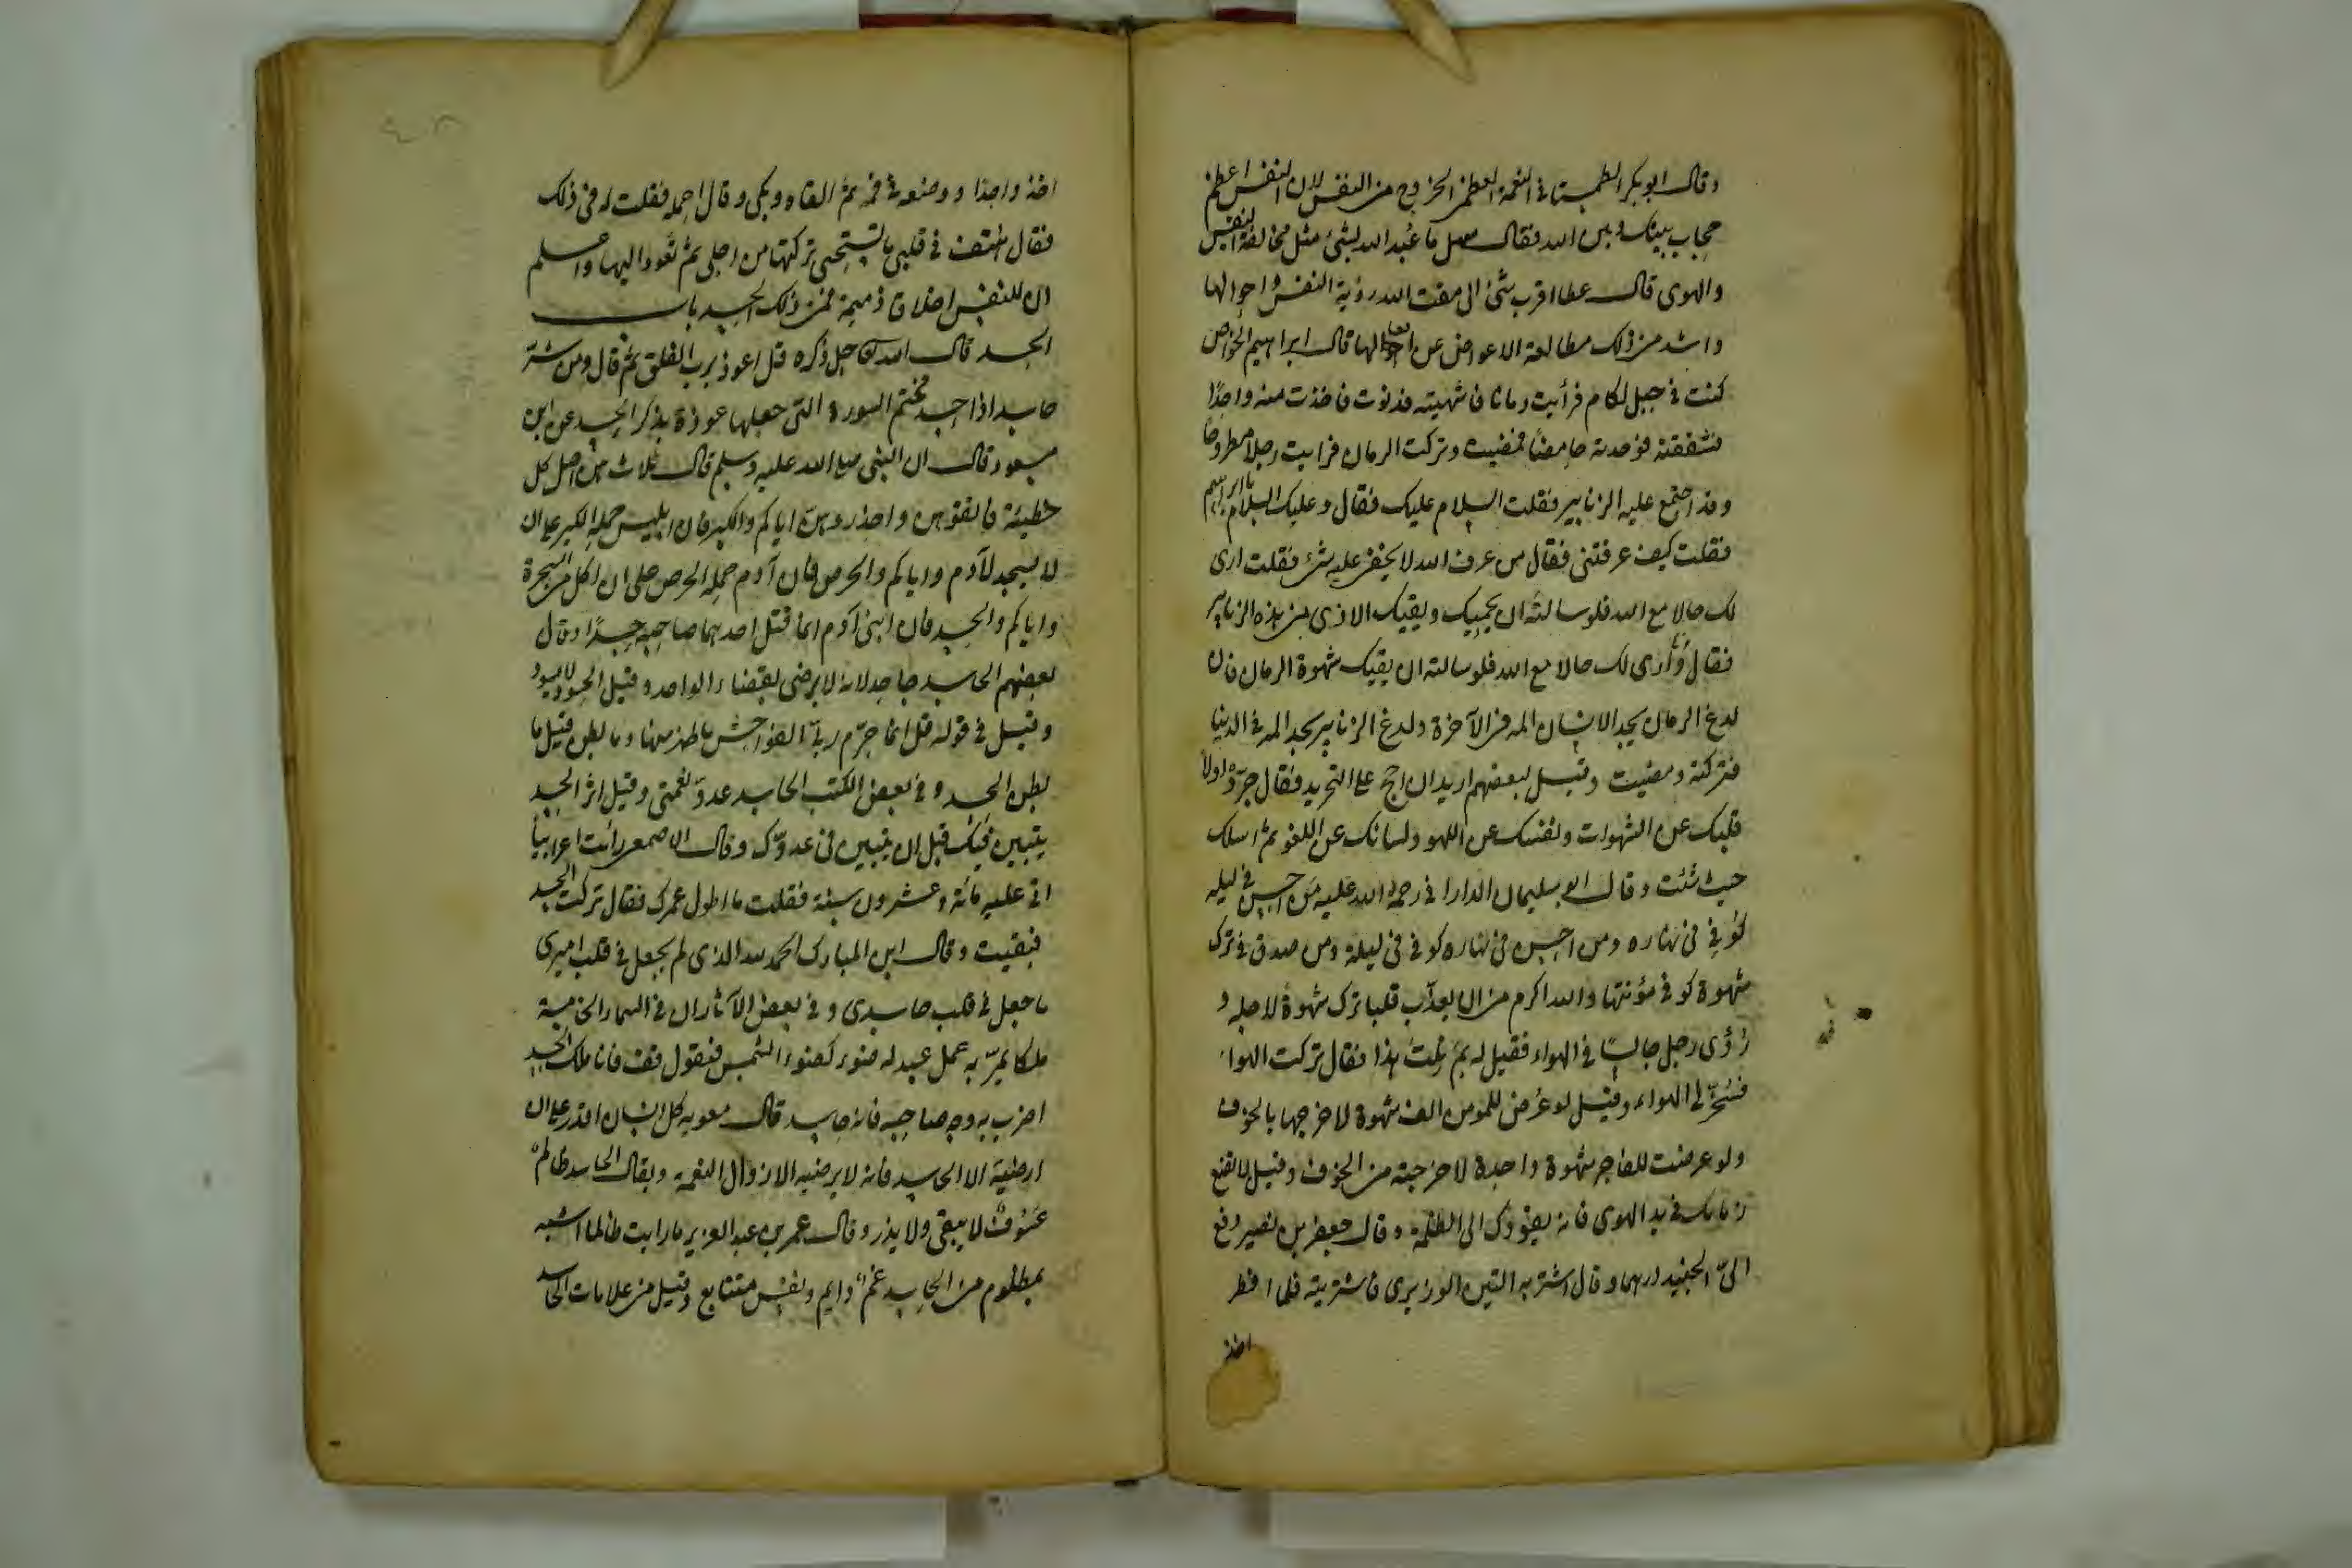 وقال ابو بكر الطمستاني النعمة العظمى الخروج من النفس لان النفس اعظم
حجاب بينك وبين الله وقال سهل ما عُبد الله بشئ مثل مخالفة النفس
والهوى قال عطا اقرب شئ الى مقت الله رؤية النفس واحوالها
واشد من ذلك مطالعة الاعواض عن افعالها قال ابراهيم الخواص
كنت في جبل لكام فرأيت رمانا فاشتهيته فدنوت فاخذت منه واحدًا
فشققته فوجدته حامضًا فمضيت وتركت الرمان فرايت رجلا مطروحًا
وقد اجتمع عليه الزنابير فقلت السلام عليك فقال وعليك السلام يا ابراهيم
فقلت كيف عرفتني فقال من عرف الله لا يخفى عليه شئ فقلت ارى
لك حالا مع الله فلو سالته ان يحميك ويقيك الاذى من هذه الزنابير
فقال وأرى لك حالا مع الله فلو سالته ان يقيك شهوة الرمان فان
لدغ الرمان يجد الانسان المه في الآخرة ولدغ الزنابير يجد المه في الدنيا
فتركته ومضيت وقيل لبعضهم اريد ان احج على التجريد فقال جرّد اولاً
قلبك عن الشهوات ونفسك عن اللهو ولسانك عن اللغو ثم اسلك
حيث شئت وقال ابو سليمان الداراني رحمة الله عليه من احسن في ليله
كُوفي في نهاره ومن احسن في نهاره كوفي في ليله ومن صدق في ترك
شهوة كوفي مؤنتها والله اكرم من ان يعذب قلبا ترك شهوة لاجله و
رُؤى رجل جالسًا في الهواء فقيل له بمَ نلتَ هذا فقال تركت الهوا
فسُخّر لى الهواء وقيل لو عُرض للمومن الف شهوة لاخرجها بالخوف
ولو عرضت للفاجر شهوة واحدة لاخرجته من الخوف وقيل لا تضع
زمامك في يد الهوى فانه يقودك الى الظلمة وقال جعفر بن نصير دفع
الىّ الجنيد درهما وقال اشتر به التين الوزيرى فاشتريته فلما افطر
اخذ
اخذ واحدًا ووضعه في فمه ثم القاه وبكى وقال احمله فقلت له في ذلك
فقال هتف في قلبي ما تستحيى تركتها من اجلى ثم تعود اليها واعلم
ان للنفس اخلاق ذميمة فمن ذلك الحسد باب
الحسد قال الله جل ذكره قل اعوذ برب الفلق ثم قال ومن شرّ
حاسد اذا حسد فختم السورة التى جعلها عوذة بذكر الحسد عن ابن
مسعود قال ان النبى صلى الله عليه وسلم قال ثلاث هن اصل كل
خطيئة فاتقوهن واحذروهن اياكم والكبر فان ابليس حمله الكبر على ان
لا يسجد لآدم واياكم والحرص فان آدم حمله الحرص على ان اكل من الشجرة
واياكم والحسد فان ابنى آدم انما قتل احدهما صاحبه حسدًا وقال
بعضهم الحاسد جاحد لانه لا يرضى بقضاء الواحد وقيل الحسود لا يسود
وقيل في قوله قل انما حرّم ربىّ الفواحش ما ظهر منها وما بطن قيل ما
بطن الحسد و في بعض الكتب الحاسد عدوّ نعمتى وقيل اثر الحسد
يتبين فيك قبل ان يتبين في عدوّك وقال الاصمعى رأيت اعرابيًا
اتى عليه مائة وعشرون سنة فقلت ما اطول عمرك فقال تركت الحسد
فبقيت وقال ابن المبارك الحمد لله الذى لم يجعل في قلب اميرى
ما جعل في قلب حاسدى و في بعض الآثار ان في السماء الخامسة
ملكا يمرّ به عمل عبد له ضوء كضوء الشمس فيقول قف فانا ملك الحسد
اضرب به وجه صاحبه فانه حاسد قال معويه كل انسان اقدر على ان
ارضيه الا الحاسد فانه لا يرضيه الا زوال النعمة ويقال الحاسد ظالم
غشوم لا يبقى ولا يذر وقال عمر بن عبد العزيز ما رايت ظالما اشبه
بمظلوم من الحاسد غم دايم ونفس متتابع وقيل من علامات الحاسد